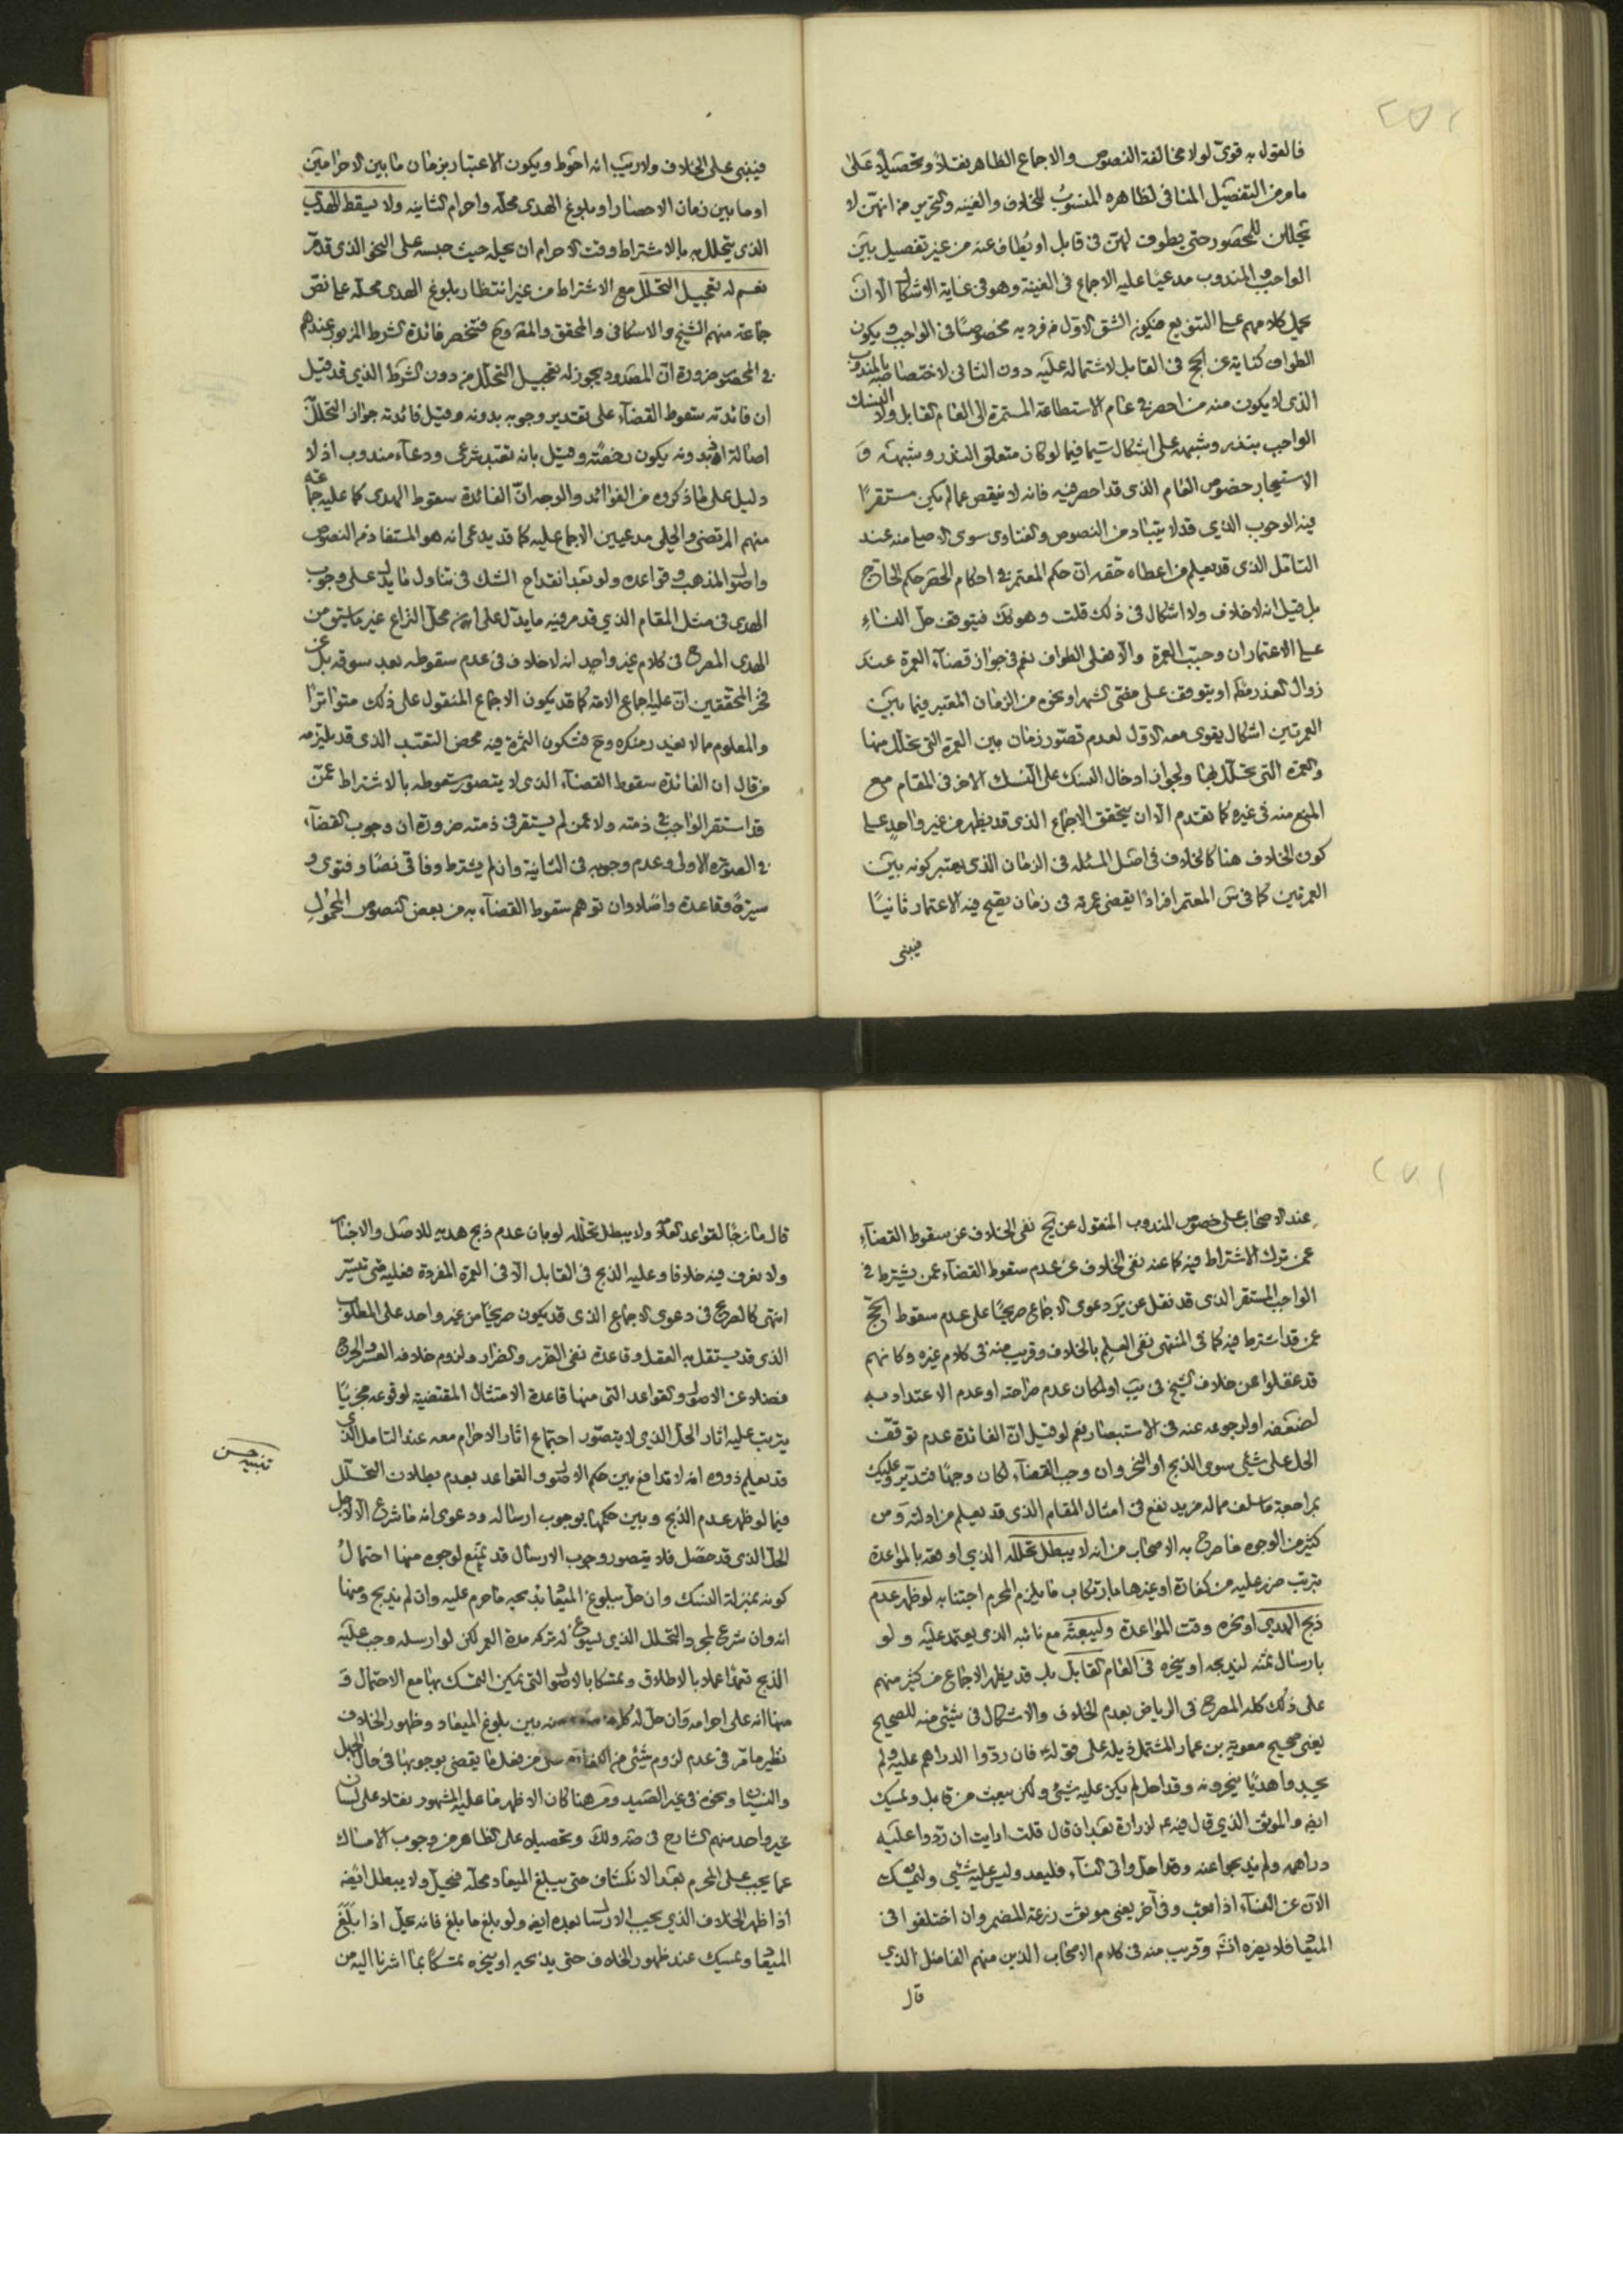 فالقول به قوى لولا مخالفة النصوص والاجماع الظاهر نقلا وتحصيلا على
ما مر من التفصيل المنافى لظاهره المنسوب للخلاف والغنيه والتحرير من انهن لا
تحللن للمحصور حتى يطوف لهن فى قابل او يطاف عنه من غير تفصيل بين
الواجب والمندوب مدعيا عليه الاجماع فى الغنية وهو فى غاية الاشكال الا ان
يحمل كلامهم على التنويع فيكون الشق الاول من فرديه مخصوصا فى الواجب ويكون
الطواف كناية عن الحج فى القابل لاشتماله عليه دون الثانى لاختصاصه بالمندوب
الذى لا يكون منه من احصر فى عام الاستطاعة المستمرة الى العام القابل ولا النسك
الواجب بنذر وشبهه على اشكال سيما فيما لو كان متعلق النذر وشبهه و
الاستيجار خصوص العام الذى قد احصر فيه فانه لا ينقص عما لم يكن مستقرا
فيه الوجوب الذى قد لا يتبادر من النصوص والفتاوى سوى الاصيل منه عند
التامل الذى قد يعلم من اعطاه حقه ان حكم المعتمر فى احكام الحصر حكم الحاج
بل قيل انه لا خلاف ولا اشكال فى ذلك قلت وهو كك فيتوقف حل النساء
على الاعتمار ان وجبت العمرة والا فعلى الطواف نعم فى جواز قضاء العمرة عند
زوال العذر مطلقا او يتوقف على مضى الشهر او نحوه من الزمان المعتبر فيما بين
العمرتين اشكال يقوى معه الاول لعدم تصور زمان بين العمرة التى تحلل منها
والعمرة التى تحلل بها ولجواز ادخال النسك على النسك الاخر فى المقام مع
المنع منه فى غيره كما تقدم الا ان يتحقق الاجماع الذى قد يظهر من غير واحد على
كون الخلاف هنا كالخلاف فى اصل المسئله فى الزمان الذى يعتبر كونه بين
العمرتين كما فى المعتمر افرادا يقضى عمرته فى زمان يصح فيه الاعتمار ثانيا
فينبى
فينبى على الخلاف ولا ريب انه احوط ويكون الاعتبار بزمان ما بين الاحرامين
او ما بين زمان الاحصار او بلوغ الهدى محله واحرام الثانيه ولا يسقط الهدى
الذى يتحلل به بالاشتراط وقت الاحرام ان يحله حيث حبسه على النحو الذى قد مر
نعم له تعجيل التحلل مع الاشتراط من غير انتظار بلوغ الهدى محله على ما نص
جماعة منهم الشيخ والاسكافى والمحقق والمقداد فتختص فائدة الشرط المزبور عندهم
فى المحصور ضرورة ان المصدود يجوز له تعجيل التحلل من دون الشرط الذى قد قيل
ان فائدته سقوط القضاء على تقدير وجوبه بدونه وقيل فائدته جواز التحلل
اصالة اذ بدونه يكون رخصة وقيل بانه تعبد شرعى ودعاء مندوب اذ لا
دليل على ما ذكروه من الفوائد والوجه ان الفائدة سقوط الهدى كما عليه جماعة
منهم المرتضى والحلى مدعيين الاجماع عليه كما قد يدعى انه هو المستفاد من النصوص
واصول المذهب وقواعده ولو بعد انقداح الشك فى تناول ما يدل على وجوب
الهدى فى مثل المقام الذى قد مر فيه ما يدل على انه محل النزاع غير ما سيق من
الهدى المصرح فى كلام غير واحد انه لا خلاف فى عدم سقوطه بعد سوقه بل عن
فخر المحققين ان عليه اجماع الامة كما قد يكون الاجماع المنقول على ذلك متواترا
والمعلوم مما لا يفيد منكره وح فتكون الثمرة فيه محض التعبد الذى قد يلتزمه
من قال ان الفائدة سقوط القضاء الذى لا يتصور سقوطه بالاشتراط عمن
قد استقر الواجب فى ذمته ولا عمن لم يستقر فى ذمته ضرورة ان وجوب القضاء
فى الصورة الاولى وعدم وجوبه فى الثانية وان لم يشترط وفاقى نصا وفتوى و
سيرة وقاعدة واصلا وان توهم سقوط القضاء به من بعض النصوص المحمول
عند الاصحاب على خصوص المندوب المنقول عن نفى الخلاف عن سقوط القضاء
عمن ترك الاشتراط فيه كما عنه نفى الخلاف عن عدم سقوط القضاء عمن يشترط فى
الواجب المستقر الذى قد نقل عن دعوى الاجماع صريحا على عدم سقوط الحج
عمن قد اشترط فيه كما فى المنتهى نفى العلم بالخلاف وقريب منه فى كلام غيره وكانهم
قد غفلوا عن خلاف الشيخ فى يب او لمكان عدم صراحته او عدم الاعتداد به
لضعفه او لرجوعه عنه فى الاستبصار نعم لو قيل ان الفائدة عدم توقف
الحل على شئ سوى الذبح او النحر وان وجب القضاء لكان وجها فتدبر وعليك
بمراجعة ما سلف مما له مزيد نفع فى امثال المقام الذى قد يعلم من ادلته ومن
كثير من الوجوه ما صرح به الاصحاب من انه لا يبطل تحلله الذى اوقعه بالمواعدة
بترتب ضرر عليه من كفارة او غيرها بارتكاب ما يلزم المحرم اجتنابه لو ظهر عدم
ذبح الهدى او نحره وقت المواعدة وليبعثه مع نائبه الذى يعتمد عليه ولو
بارسال ثمنه ليذبحه او ينحره فى العام القابل بل قد يظهر الاجماع من كثير منهم
على ذلك كله المصرح فى الرياض بعدم الخلاف والاشكال فى شئ منه للصحيح
يعنى صحيح معوية بن عمار المشتمل ذيله على قوله فان ردوا الدراهم عليه ولم
يجدوا هديا ينحرونه وقد احل لم يكن عليه شئ ولكن يبعث من قابل ويمسك
ايضا والموثق الذى قال فيه لزرارة بعد ان قال قلت ارايت ان ردوا عليه
دراهمه ولم يذبحوا عنه وقد احل واتى النساء فليعد وليس عليه شئ وليمسك
الان عن النساء اذا بعث وفى آخر يعنى موثق زرعة المضمر وان اختلفوا فى
الميقات فلا يضره انتهى وقريب منه فى كلام الاصحاب الذين منهم الفاضل الذى
قال
قال مازجا لقواعد العلامة ولا يبطل تحلله لو بان عدم ذبح هديه للاصل والاخبار
ولا نعرف فيه خلافا وعليه الذبح فى القابل الا فى العمرة المفردة فعليه متى تيسر
انتهى كالصريح فى دعوى الاجماع الذى قد يكون صريحا من غير واحد على المطلوب
الذى قد يستقل به العقل وقاعدة نفى الضرر والضرار ولزوم خلافه العسر والحرج
فضلا عن الاصول والقواعد التى منها قاعدة الامتثال المقتضية لوقوعه مجزيا
يترتب عليه اثار الحل الذى لا يتصور اجتماع اثار الاحرام معه عند التامل الذى
قد يعلم ذووه انه لا تدافع بين حكم الاصول والقواعد بعدم بطلان التحلل
فيما لو ظهر عدم الذبح وبين حكمها بوجوب ارساله ودعوى انه ما شرع الا لاجل
الحل الذى قد حصل فلا يتصور وجوب الارسال قد تمنع لوجوه منها احتمال
كونه بمنزلة النسك وان حل ببلوغ الميقات بذبحه ما حرم عليه وان لم يذبح ومنها
انه وان شرع لمجرد التحلل الذى يسوغ له تركه مدة العمر لكن لو ارسله وجب عليه
الذبح تعبدا عملا بالاطلاق وتمسكا بالاصول التى يمكن التمسك بها مع الاحتمال و
منها انه على احرامه وان حل له كلما بين بلوغ الميعاد وظهور الخلاف
نظير ما مر فى عدم لزوم شئ من الكفارة من فعل ما يقضى بوجوبها فى حال الجهل
والنسيان ونحوه فى غير الصيد ومن هنا كان الاظهر ما عليه المشهور نقلا على لسان
غير واحد منهم الشارح فى ضه ولك وتحصيلا على الظاهر من وجوب الامساك
عما يجب على المحرم بعد الانكشاف حتى يبلغ الميعاد محله فيحل ولا يبطل ايضا
اذا ظهر الخلاف الذى يجب الارسال بعده ايضا ولو بلغ ما بلغ فانه يحل اذا بلغ
الميقات ويمسك عند ظهور الخلاف حتى يذبحه او ينحره تمسكا بما اشرنا اليه من
تنبيه حسن